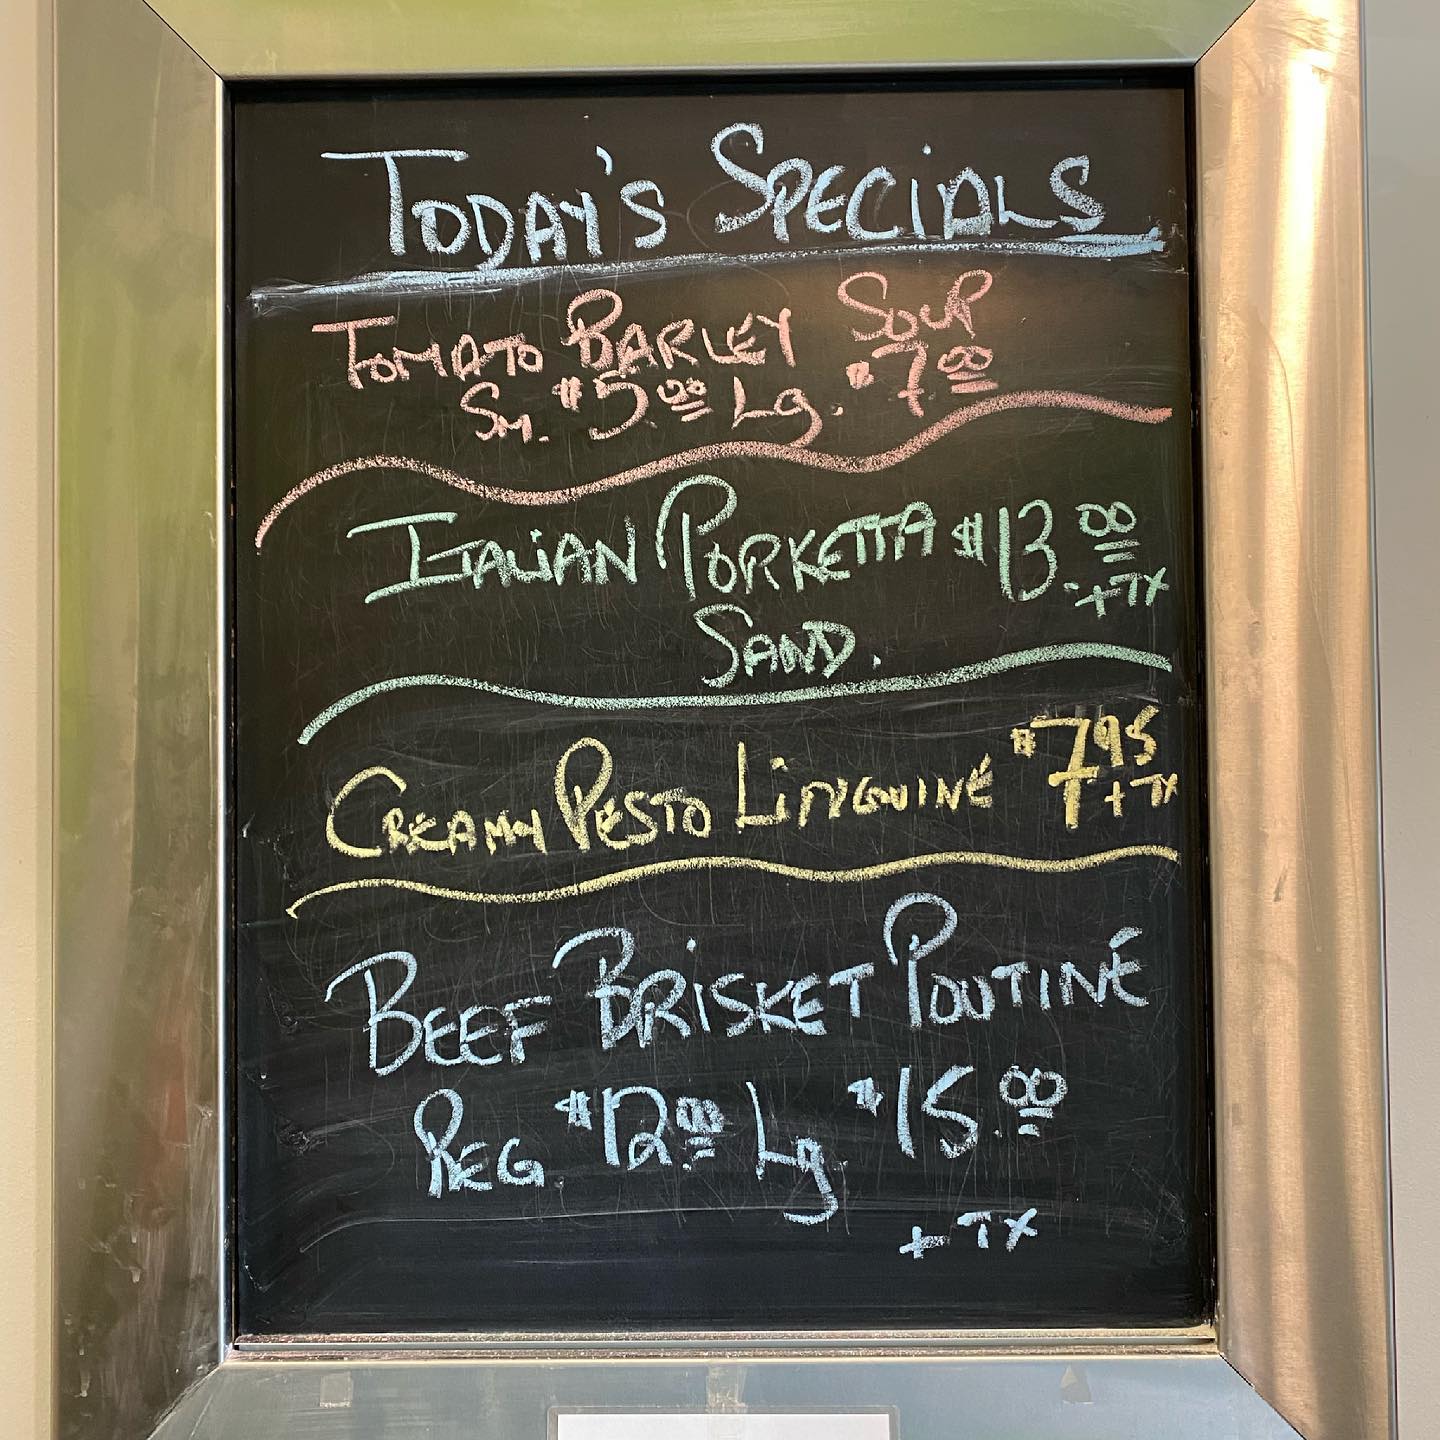 TODAY'S SPECIALS
TOMATO BARLEY SOUP
SM. $5.00 Lg. $7.00
ITALIAN PORKETTA $13.00
+TX
SAND.
CREAMY PESTO LINGUINÉ $7.95
+TX
BEEF BRISKET POUTINÉ
REG $12.00 Lg. $15.00
+TX